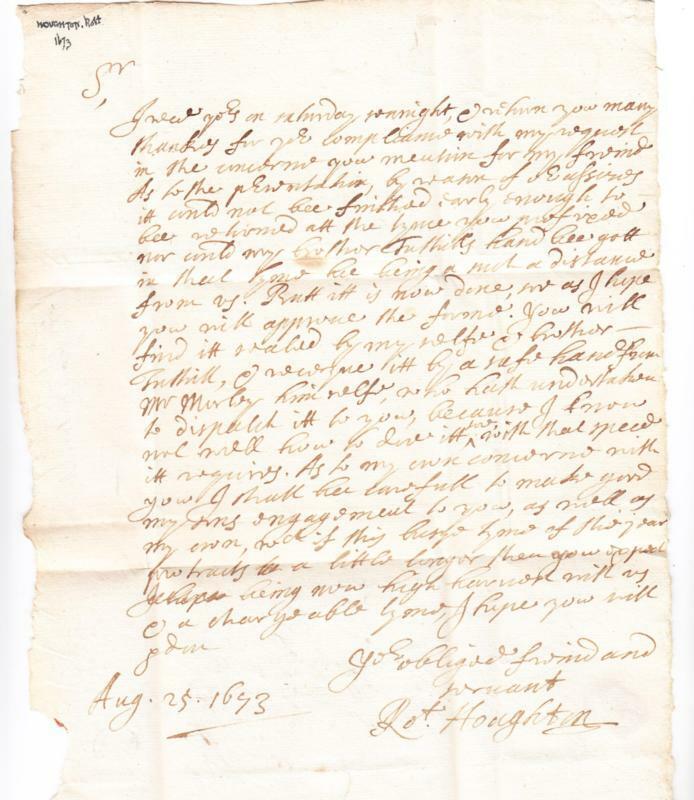 HOUGHTON. Robt
1673
Sr,
I recd yors on saturday sennight, & return you many
thankes for yor compliance with my request
in the concerne you mention for my freind
As to the pesentation, by reason of
itt could not bee finished early enough to
bee returned att the tyme you prefixed
nor could my brother Tuthills hand bee gott
in that tyme hee being att a distance
from us Butt itt is now done, soe as I hope
you will approue the forme. You will
find itt sealed by my selfe & brother
Tuthill, & receiue itt by a safe hand from
Mr Morley himselfe, who hath undertaken
to dispatch itt to you, because I know
not well how to doe itt soe with that speed
itt requires. As to my own concerne with
you I shall bee carefull to make good
my engagement to you, as well as
my own, wch if this busye tyme of the year
protracts a little longer then you expect
being now high harvest with us
& a chargeable tyme, I hope you will
pdon
Yor obliged freind and
servant
Rot. Houghton
Aug. 25. 1673